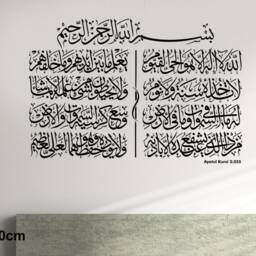 بسم الله الرحمن الرحيم
الله لا إله إلا هو الحي القيوم
لا تأخذه سنة ولا نوم
له ما في السموات وما في الأرض
من ذا الذي يشفع عنده إلا بإذنه
يعلم ما بين أيديهم وما خلفهم
ولا يحيطون بشيء من علمه إلا بما شاء
وسع كرسيه السموات والأرض
ولا يؤده حفظهما وهو العلي العظيم
Ayatul Kursi
0cm